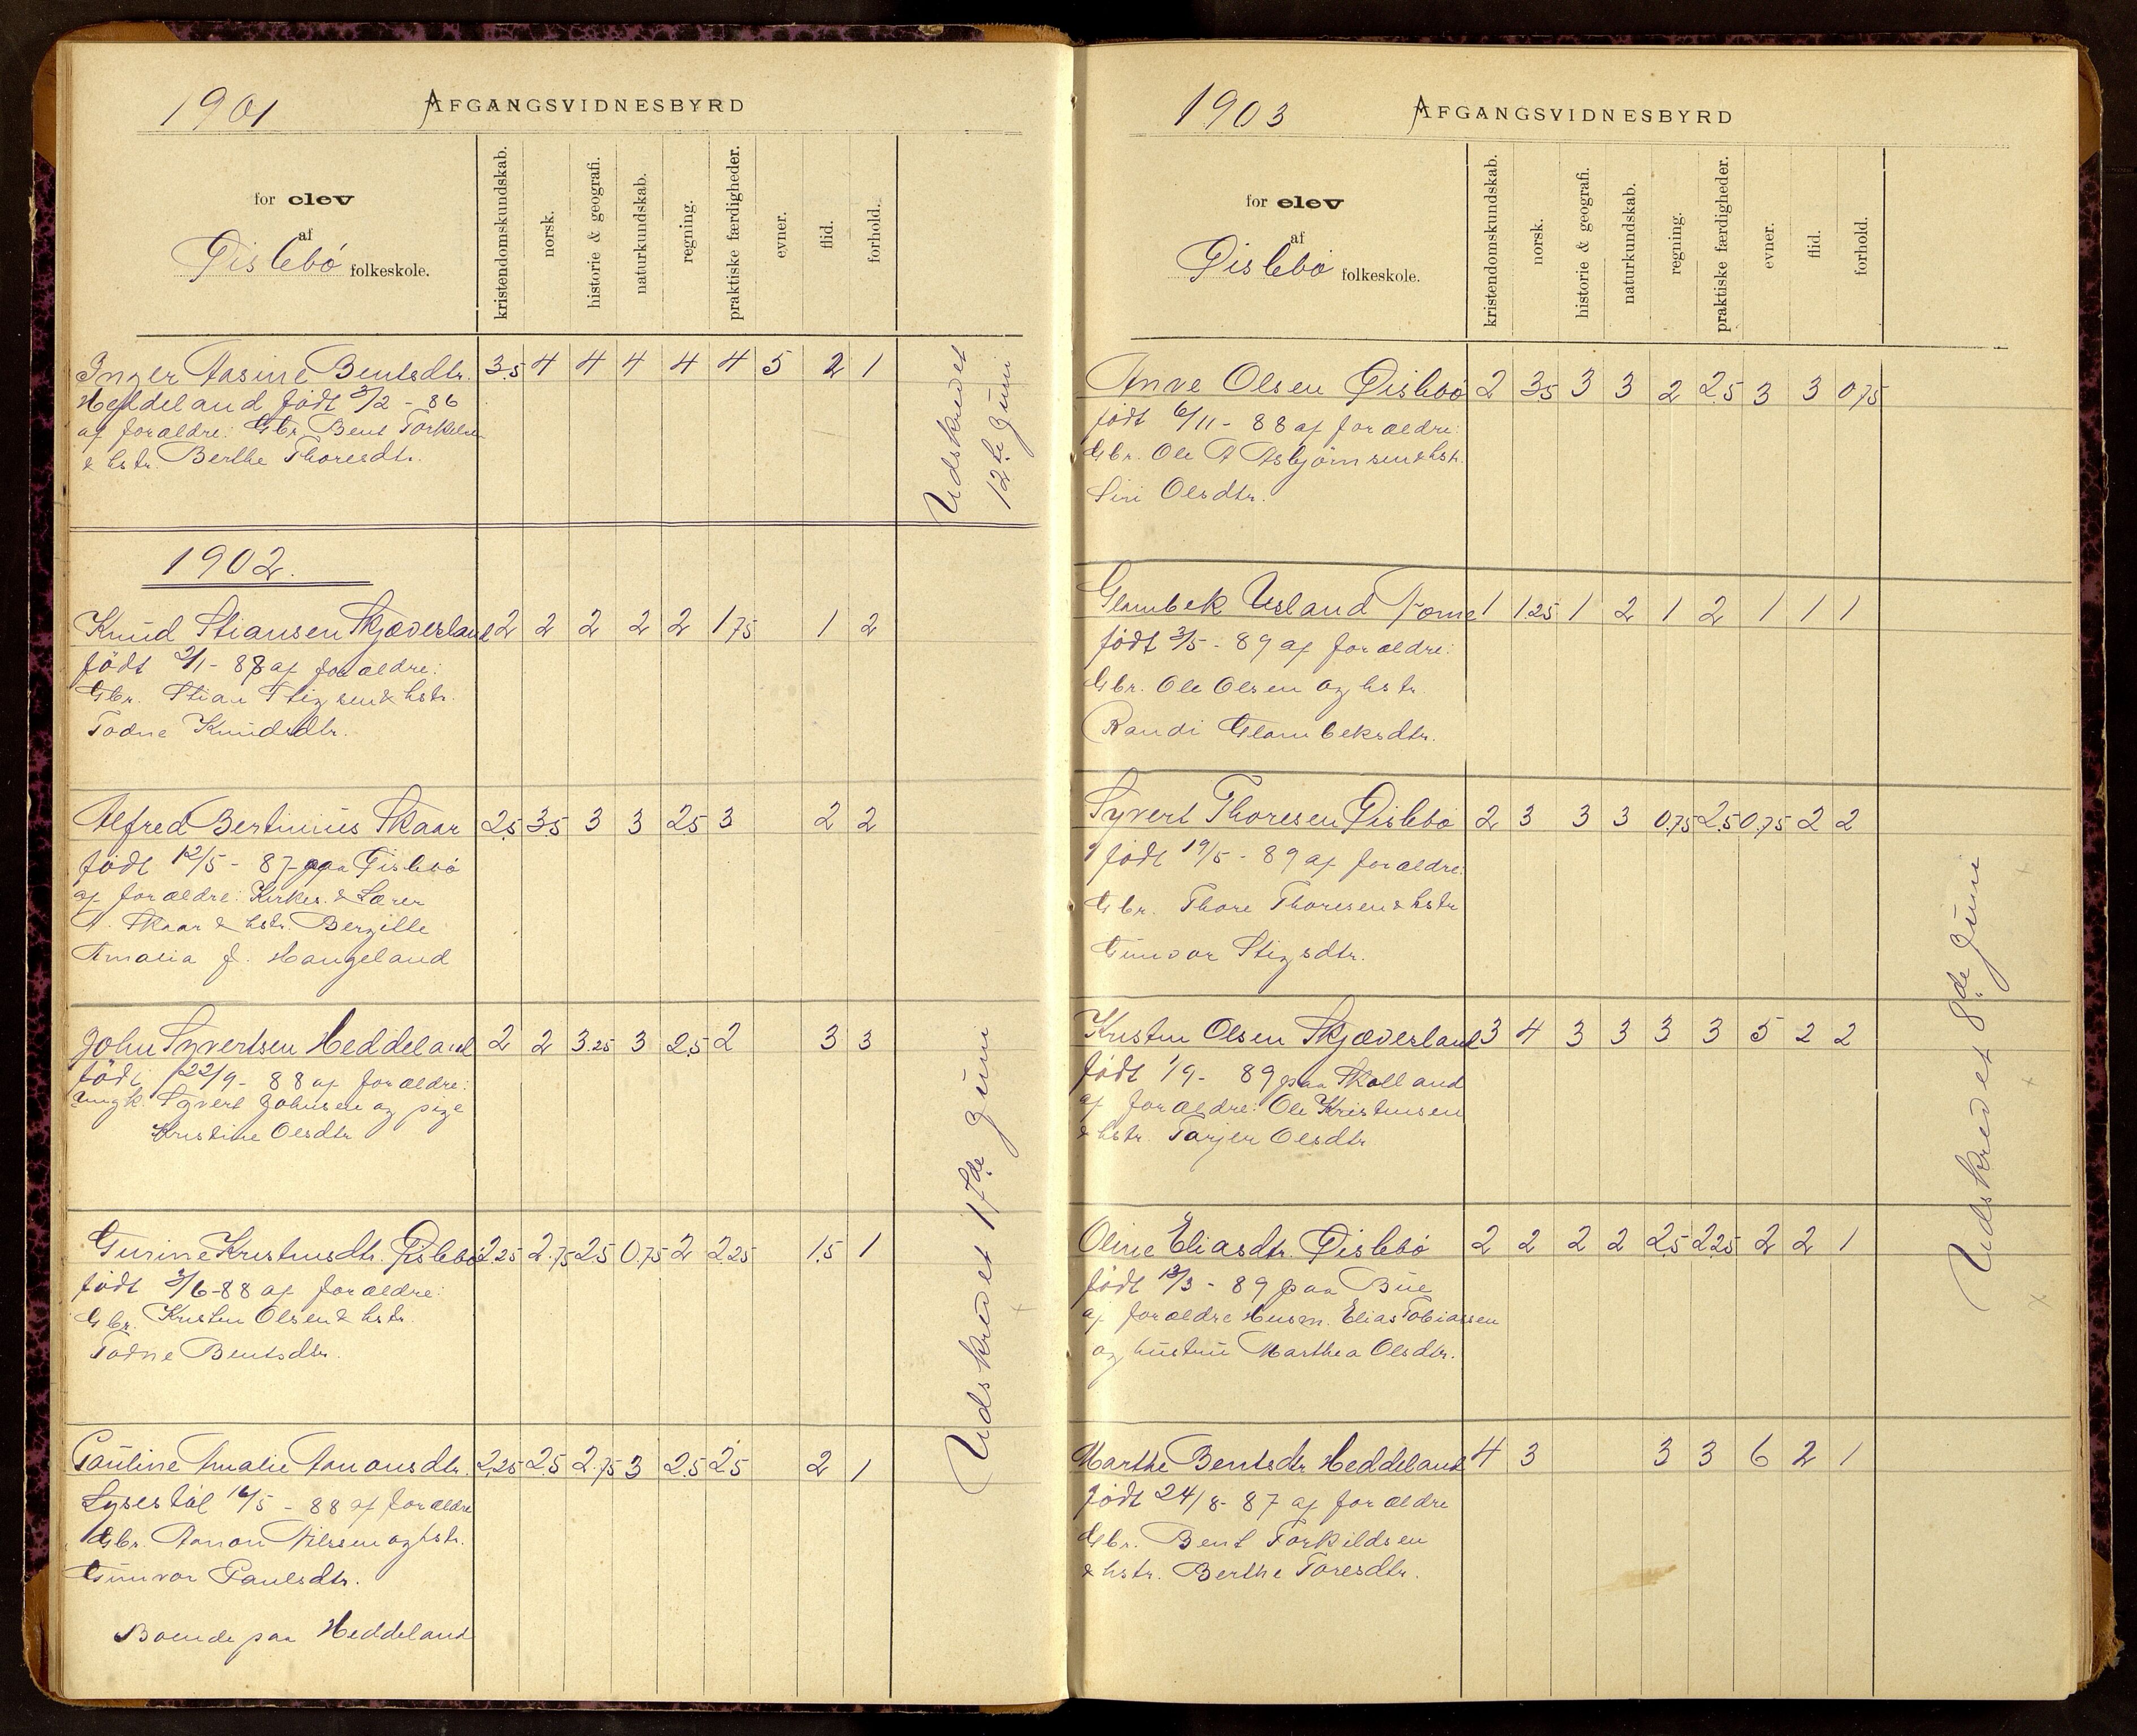 1901
AFGANGSVIDNESBYRD
for elev
af
Øislebø folkeskole.
kristendomskundskab.
norsk.
historie & geografi.
naturkundskab.
regning.
praktiske færdigheder.
evner.
flid.
forhold.
Inger Aasine Bentsdtr. 3.5 4 4 4 4 4 5 2 1
Heddeland født 3/2 - 86
af forældre: Gbr. Bent Torkelsen
& hstr. Berthe Thoresdtr.
Udskrevet
12te Juni
1902.
Knud Stiansen Skjæversland 2 2 2 2 2 1 75 1 2
født 2/1 - 88 af forældre:
Gbr. Stian Stigsen & hstr.
Todne Knudsdtr.
Alfred Bertinius Skaar 2.5 3.5 3 3 2.5 3 2 2
født 12/5 - 87 paa Øislebø
af forældre: Kirkes. & Lærer
A. Skaar & hstr. Bergille
Amalia f. Haugeland
John Syvertsen Heddeland 2 2 3.25 3 2.5 2 3 3
født 22/9 - 88 af forældre:
Ungk. Syvert Johnsen og pige
Kristine Olsdtr
Gurine Kristensdtr. Øislebø 2.25 2.75 2.5 0.75 2 2.25 1.5 1
født 3/6 - 88 af forældre:
Gbr. Kristen Olsen & hstr.
Todne Bentsdtr.
Pauline Amalie Aanonsdtr. 2.25 2.5 2.75 3 2.5 2.5 2 1
Lysestøl 16/5 - 88 af forældre
Gbr. Aanon Nilssen og hstr.
Gunvor Paulsdtr.
Boende paa Heddeland
Udskrevet 17de Juni
1903
AFGANGSVIDNESBYRD
for elev
af
Øislebø folkeskole.
kristendomskundskab.
norsk.
historie & geografi.
naturkundskab.
regning.
praktiske færdigheder.
evner.
flid.
forhold.
Anve Olsen Øislebø 2 3.5 3 3 2 2.5 3 3 0.75
født 6/11 - 88 af forældre:
Gbr. Ole A Asbjørnsen & hstr.
Siri Olsdtr.
Glambek Usland Tome 1 1.25 1 2 1 2 1 1 1
født 3/5 - 89 af forældre:
Gbr. Ole Olsen og hstr.
Randi Glambeksdtr.
Syvert Thoresen Øislebø 2 3 3 3 0.75 2.5 0.75 2 2
født 19/5 - 89 af forældre:
Gbr. Thore Thoresen & hstr
Gunvor Stigsdtr.
Kristen Olsen Skjæversland 3 4 3 3 3 3 5 2 2
født 1/9 - 89 paa Skolland
af forældre: Ole Kristensen
& hstr. Tarjer Olsdtr
Oline Eliasdtr. Øislebø 2 2 2 2 2.5 2.25 2 2 1
født 13/3 - 89 paa Bue
af forældre Husm. Elias Tobiassen
og hustru Marthea Olsdtr.
Marthe Bentsdtr Heddeland 4 3 3 3 6 2 1
født 24/8 - 87 af forældre
Gbr. Bent Torkildsen
& hstr. Berthe Toresdtr.
Udskrevet 8de Juni